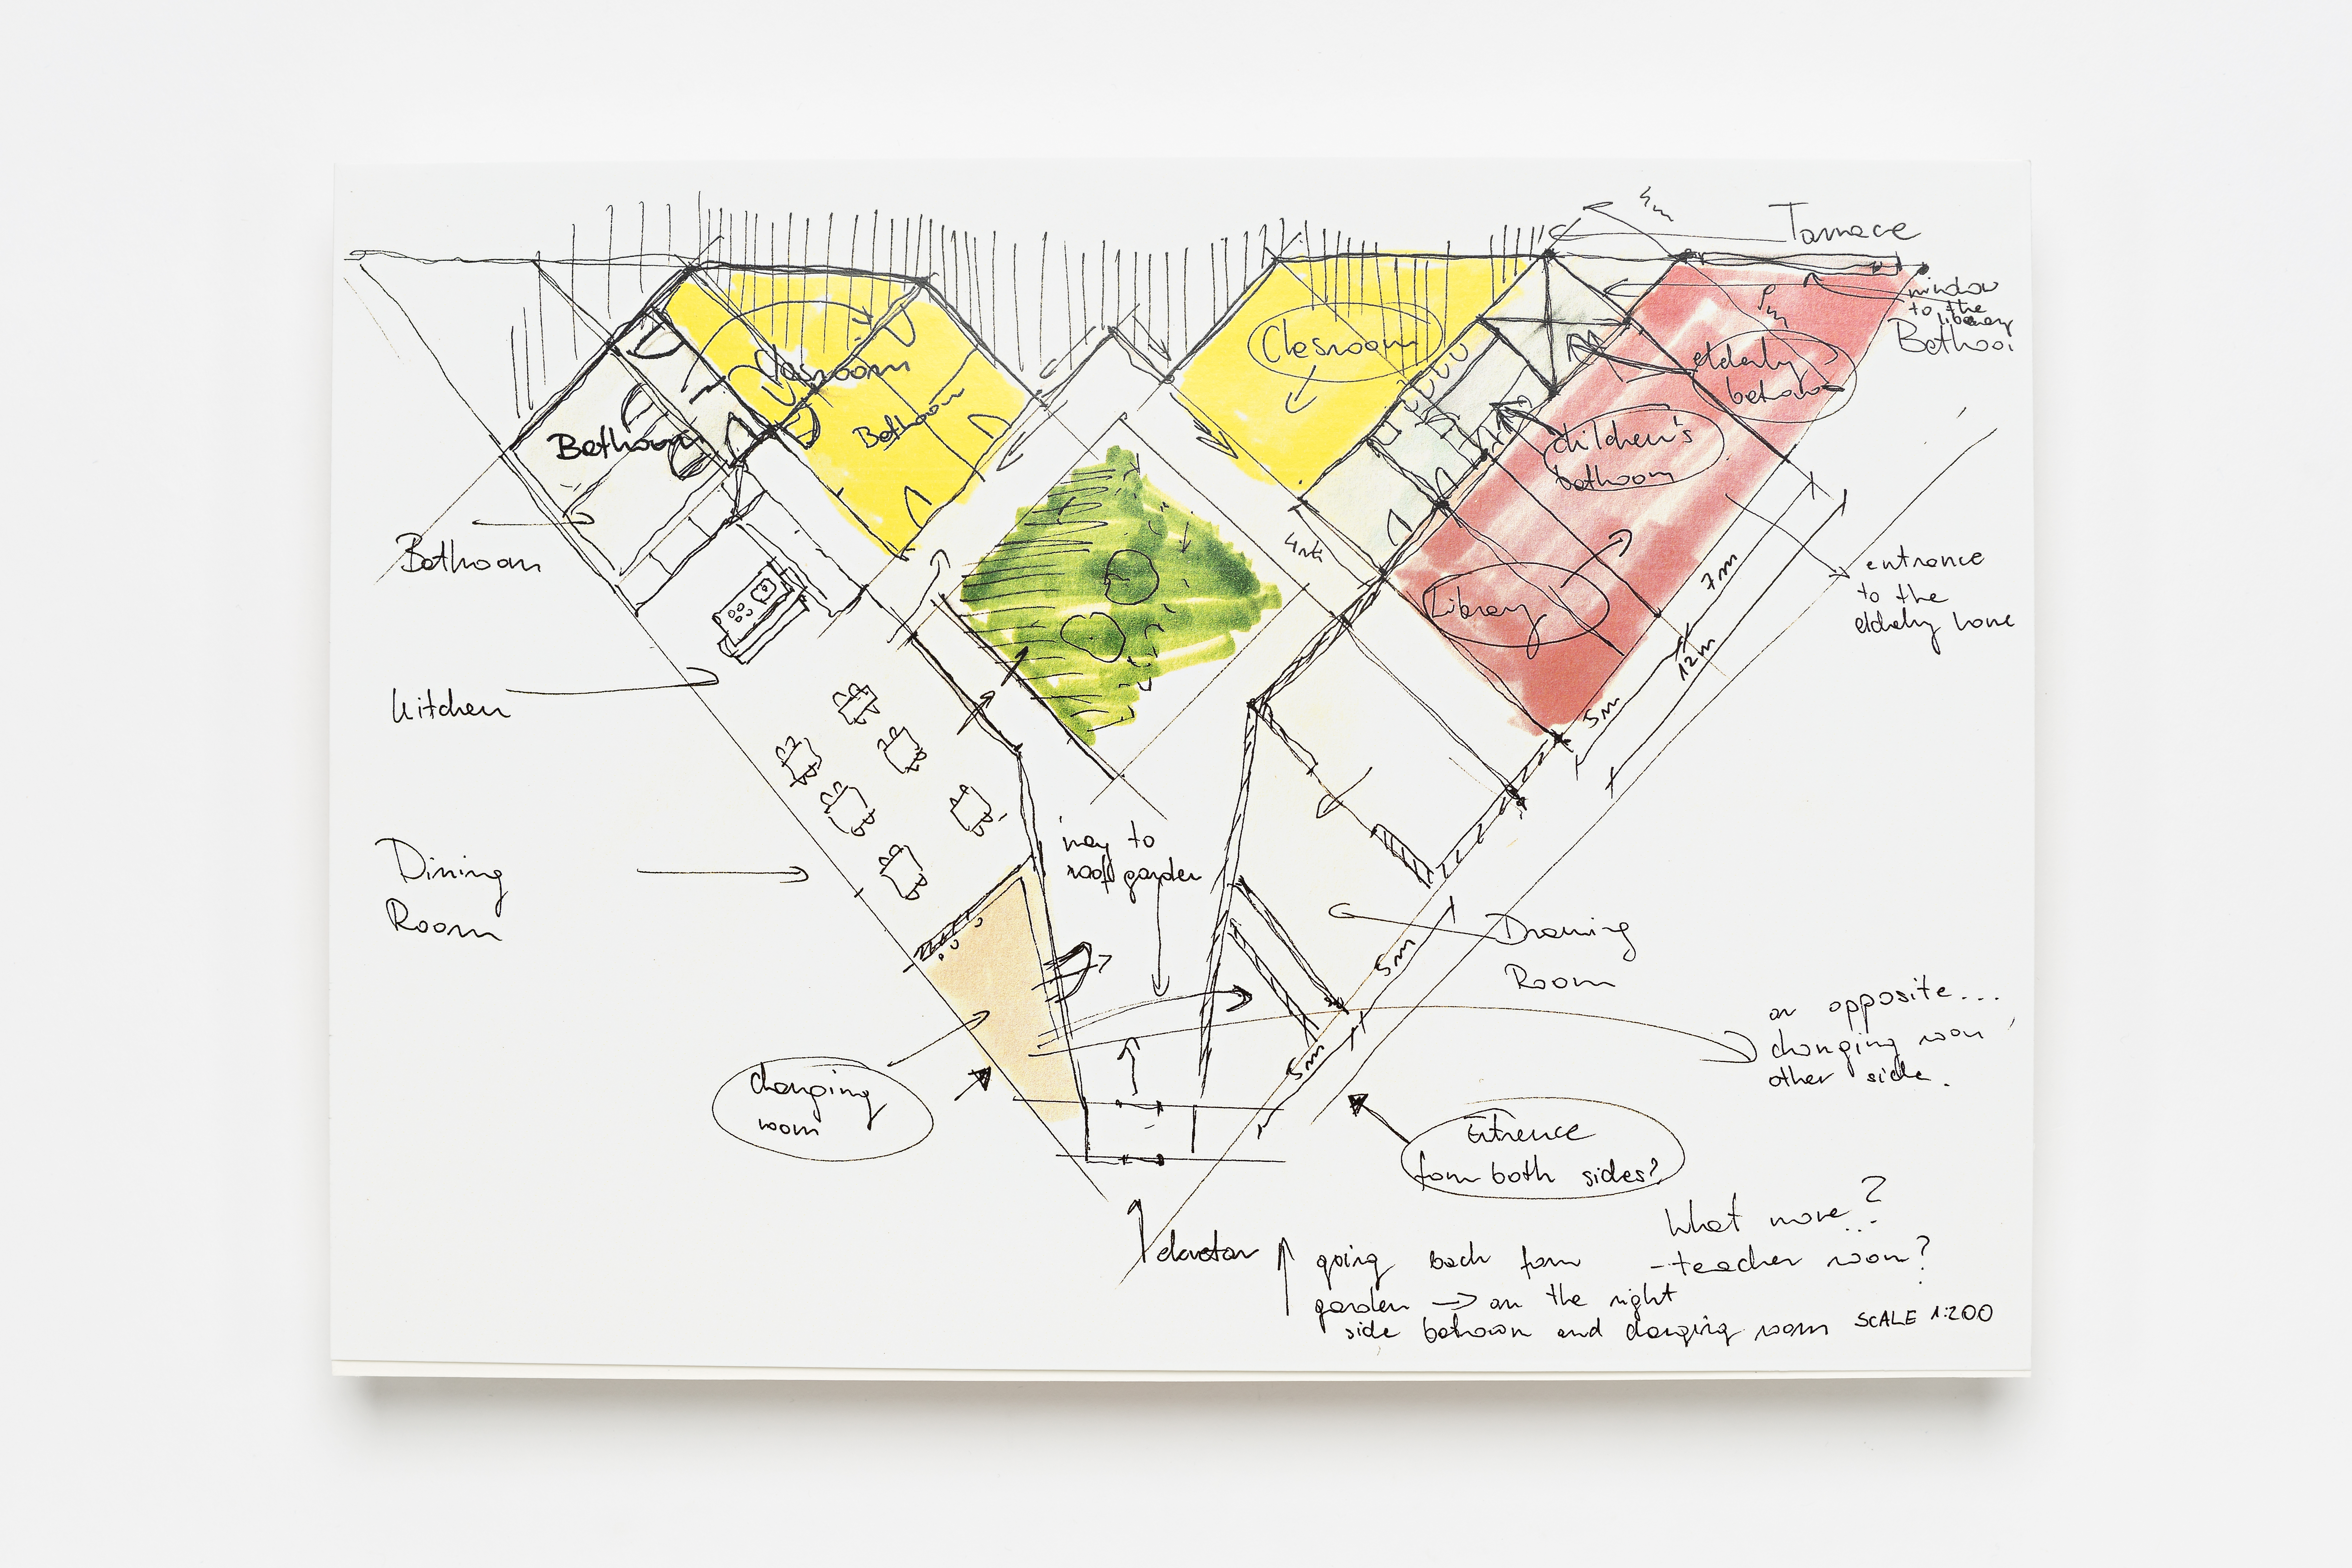 5m
Tarrace
window
to the
library
Bethooi
Clasroom
Clesroom
elderly
bethroom
Bethoom
Bethoom
children's
bathoom
Bothroom
4m
Library
7m
entrance
to the
elderly home
12m
5m
kitchen
way to
roof garden
Dining
Room
Drawing
Room
5m
an opposite...
changing room
other side.
5m
changing
room
Entrence
form both sides?
What more?
...
elevator
going back form
- teacher room?
garden → on the right
side bathroom and changing room
SCALE 1:200